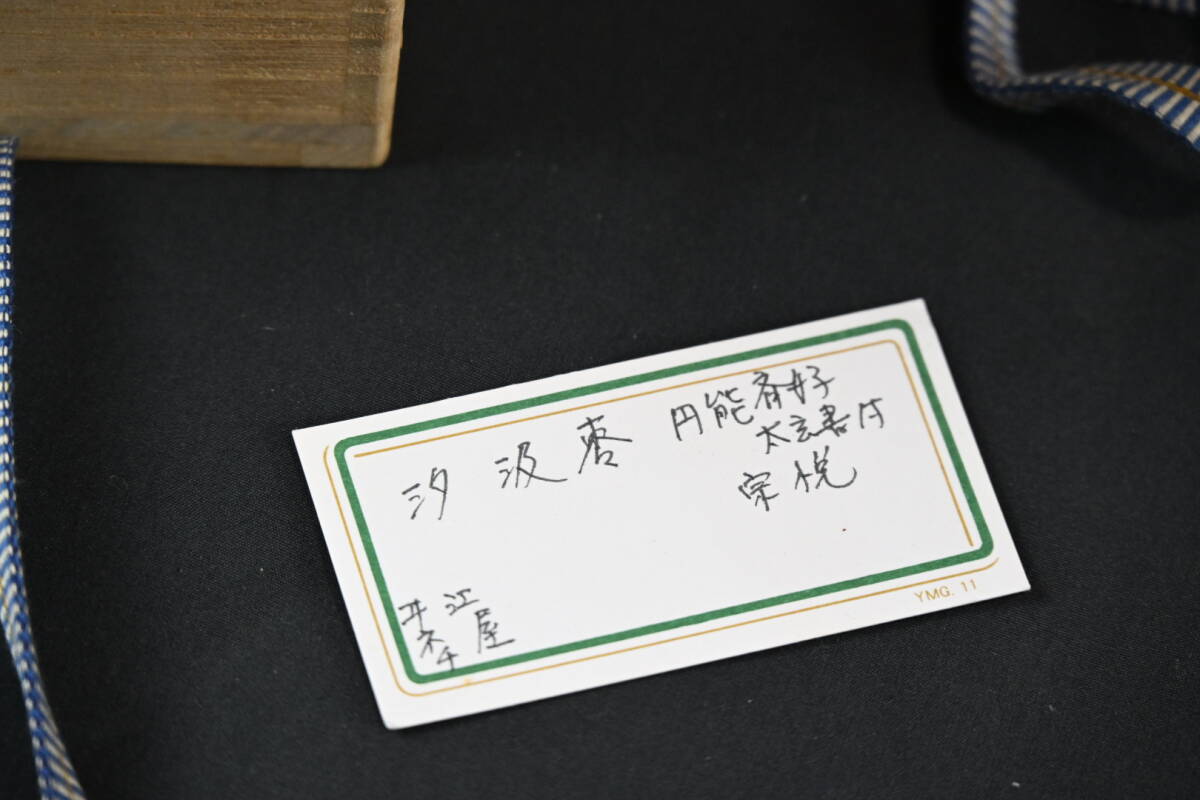 汐汲棗
円能斎好
太玄書付
宗悦
江屋
YMG. 11